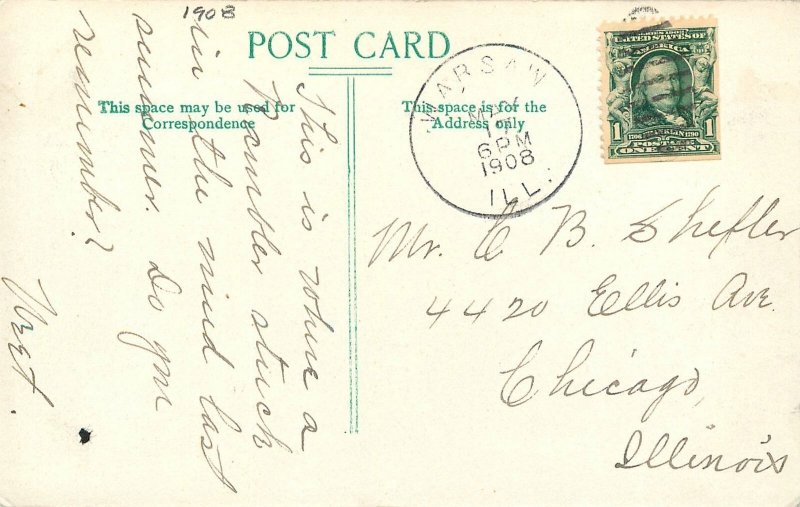 1908
POST CARD
This space may be used for
Correspondence
This space is for the
Address only
This is where a
Rambler stuck
in the mud last
summer. Do you
remember?
WARSAW
MAY
6 PM
1908
ILL.
SERIES 1902
UNITED STATES OF
AMERICA
1 1
1706 FRANKLIN 1790
POSTAGE
ONE CENT
Mr. C B. Shefler
4420 Ellis Ave
Chicago,
Illinois